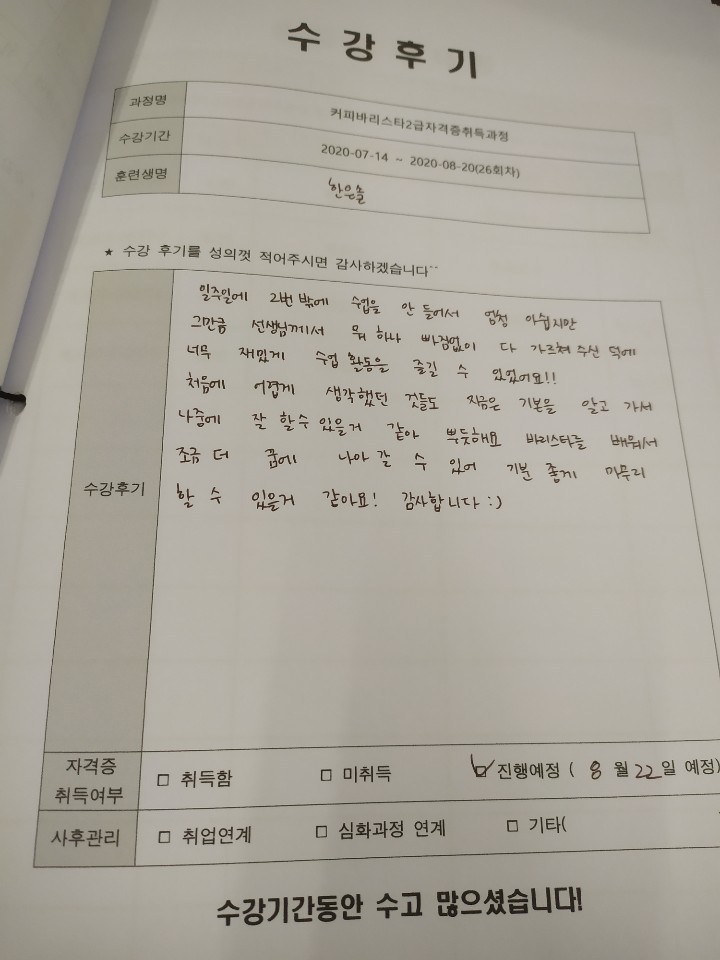 수강후기
과정명 커피바리스타2급자격증취득과정
수강기간 2020-07-14 ~ 2020-08-20(26회차)
훈련생명 한은솔
★ 수강 후기를 성의껏 적어주시면 감사하겠습니다^^
수강후기
일주일에 2번 밖에 수업을 안 들어서 엄청 아쉽지만
그만큼 선생님께서 뭐 하나 빠짐없이 다 가르쳐 주신 덕에
너무 재밌게 수업 활동을 즐길 수 있었어요!!
처음에 어렵게 생각했던 것들도 지금은 기본을 알고 가서
나중에 잘 할수 있을거 같아 뿌듯해요 바리스타를 배워서
조금 더 꿈에 나아 갈 수 있어 기분 좋게 마무리
할 수 있을거 같아요! 감사합니다 :)
자격증 취득여부 □ 취득함 □ 미취득 ☑ 진행예정 ( 8 월 22일 예정)
사후관리 □ 취업연계 □ 심화과정 연계 □ 기타(
수강기간동안 수고 많으셨습니다!